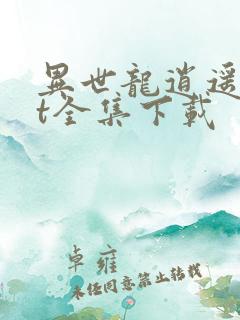 異世龍逍遥
t全集下載
卓雍
未经同意禁止转载